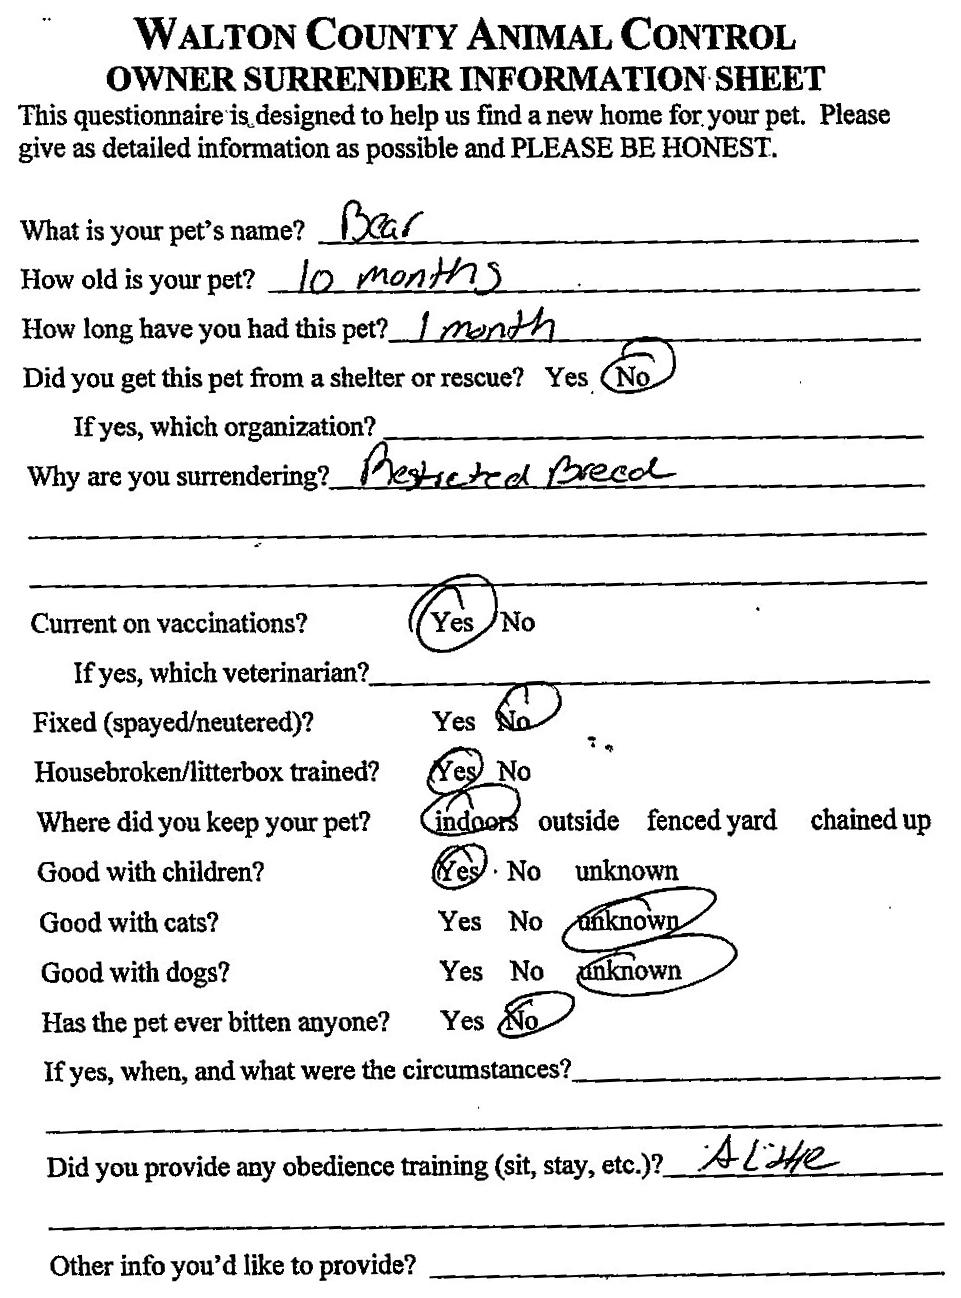 WALTON COUNTY ANIMAL CONTROL
OWNER SURRENDER INFORMATION SHEET
This questionnaire is designed to help us find a new home for your pet. Please
give as detailed information as possible and PLEASE BE HONEST.
What is your pet's name? Bear
How old is your pet? 10 months
How long have you had this pet? 1 month
Did you get this pet from a shelter or rescue? Yes No
If yes, which organization?
Why are you surrendering? Restricted Breed
Current on vaccinations? Yes No
If yes, which veterinarian?
Fixed (spayed/neutered)? Yes No
Housebroken/litterbox trained? Yes No
Where did you keep your pet? indoors outside fenced yard chained up
Good with children? Yes No unknown
Good with cats? Yes No unknown
Good with dogs? Yes No unknown
Has the pet ever bitten anyone? Yes No
If yes, when, and what were the circumstances?
Did you provide any obedience training (sit, stay, etc.)? A little
Other info you'd like to provide?